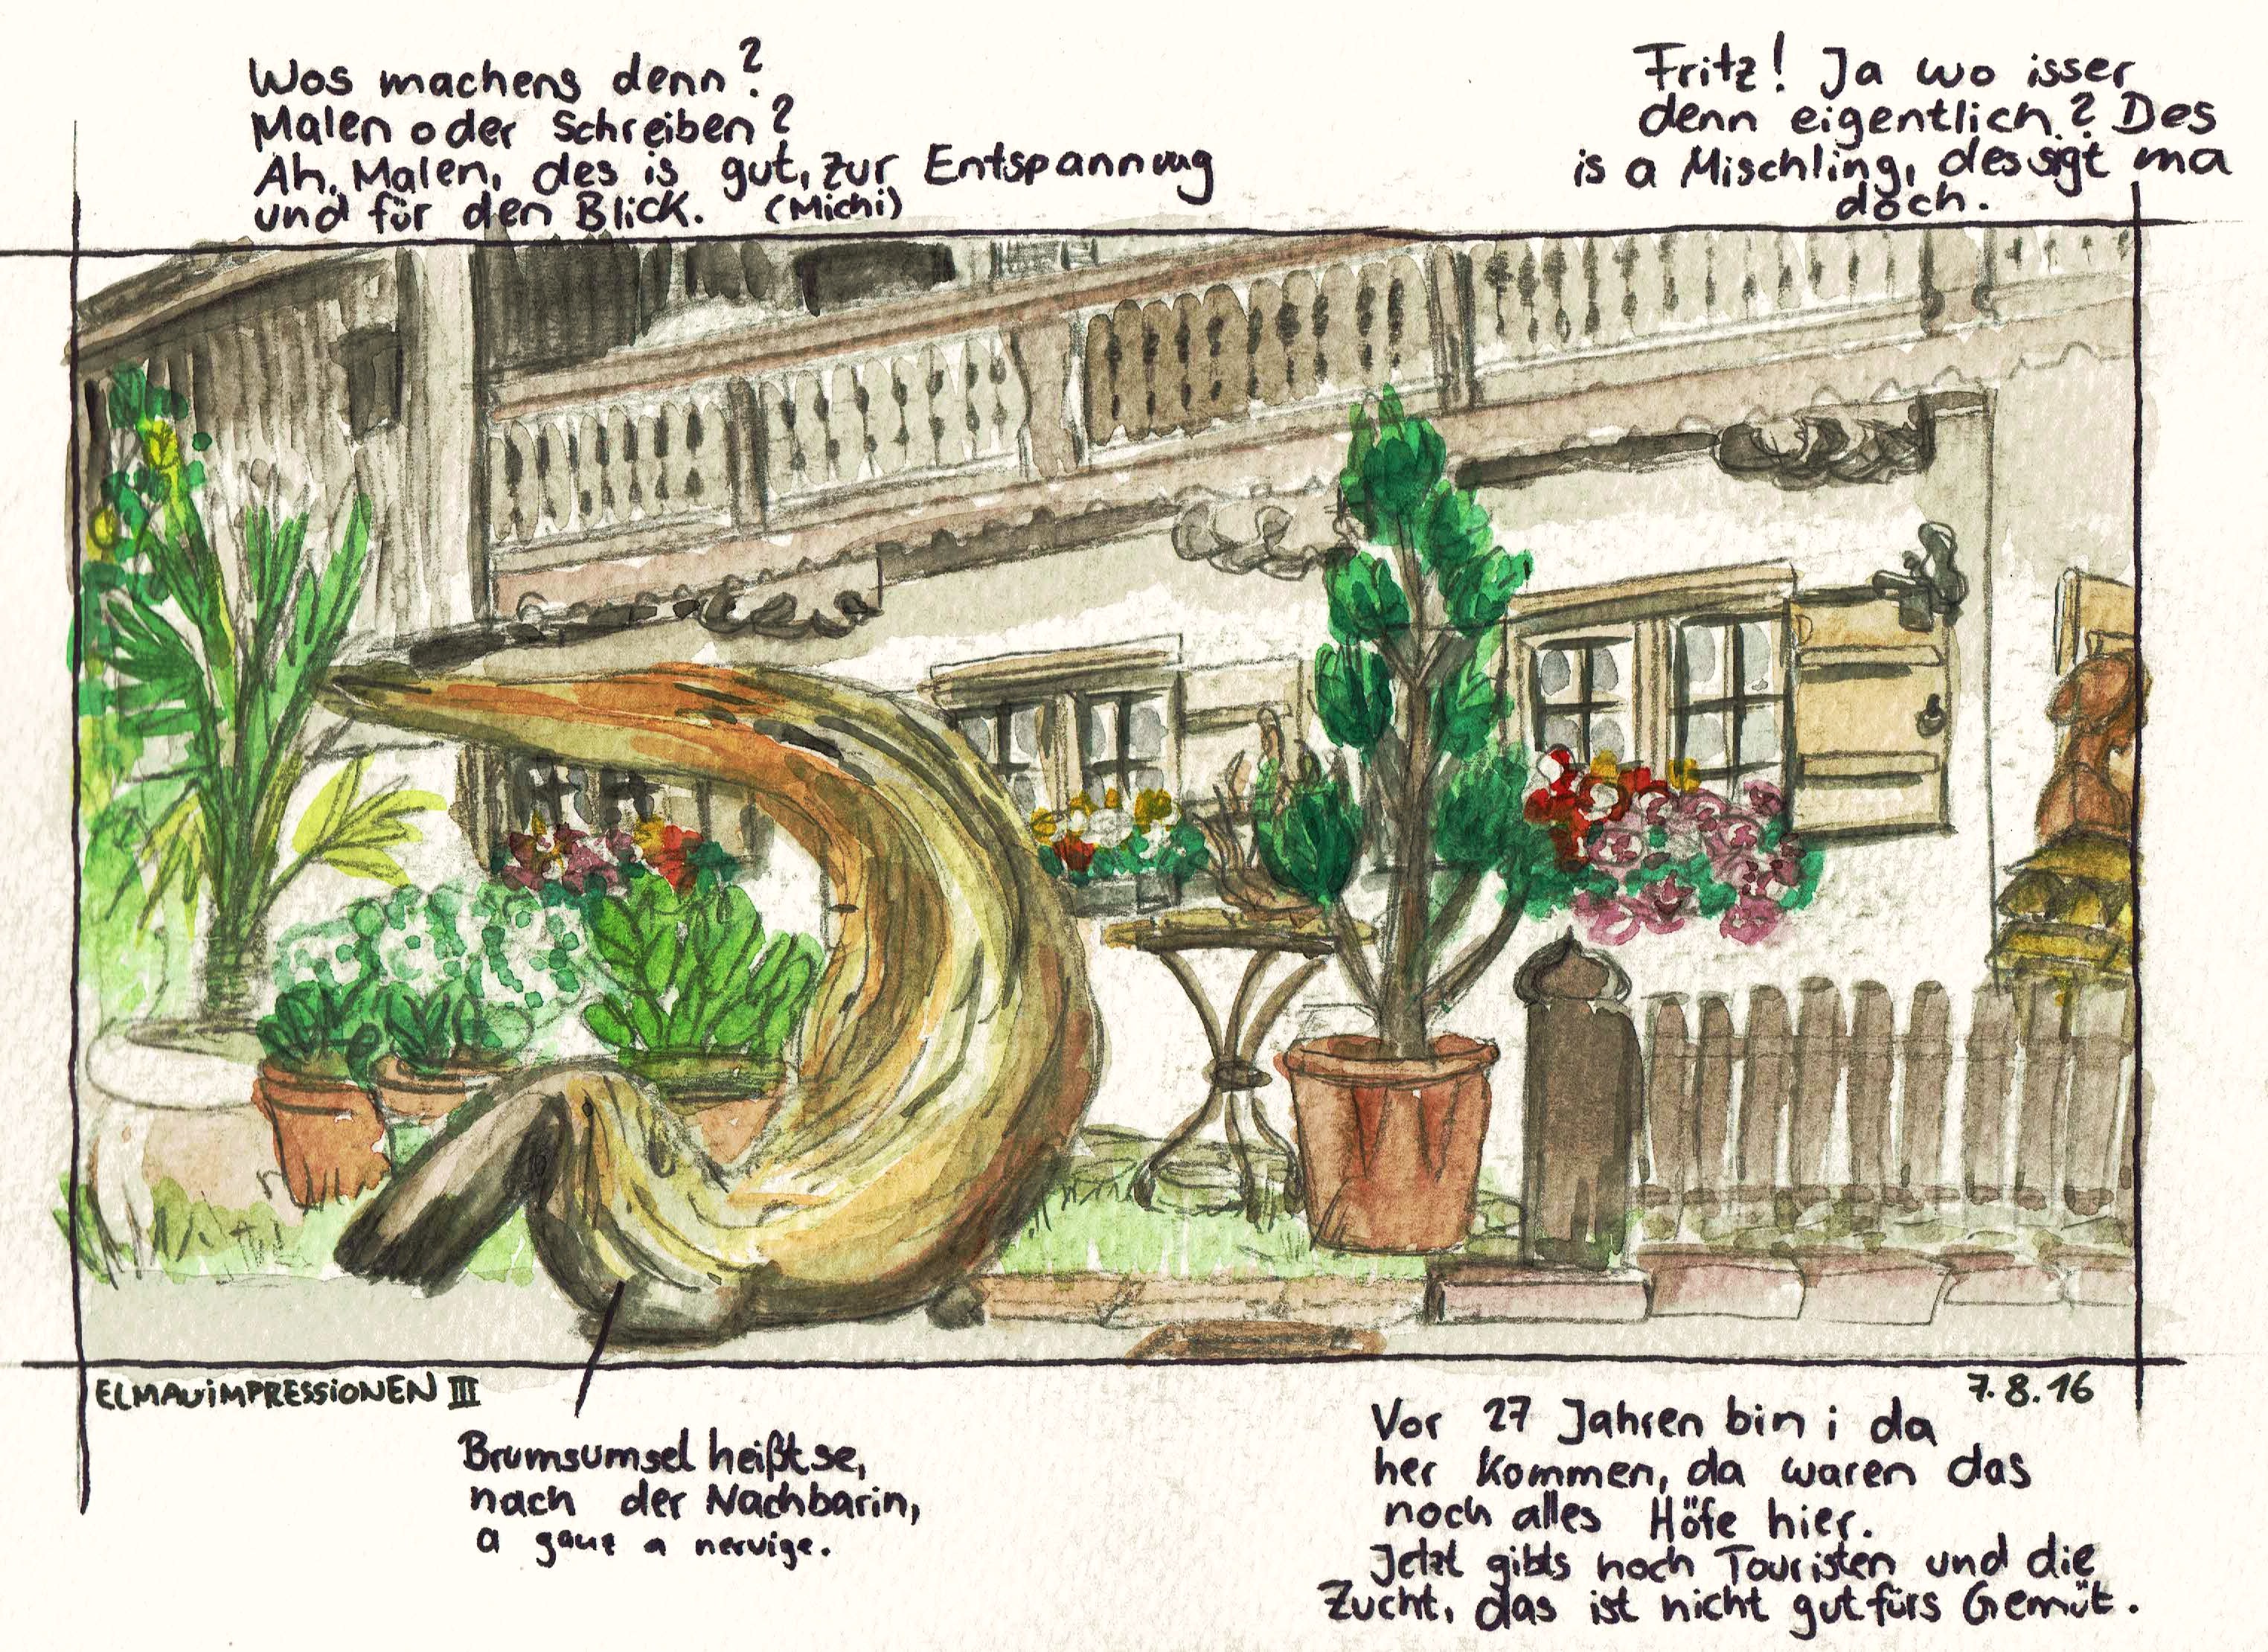 Wos machens denn?
Malen oder Schreiben?
Ah, Malen, des is gut, zur Entspannung
und für den Blick. (Michi)
Fritz! Ja wo isser
denn eigentlich? Des
is a Mischling, des sigt ma
doch.
ELMAUIMPRESSIONEN III
7.8.16
Brumsumsel heißt se,
nach der Nachbarin,
a ganz a nervige.
Vor 27 Jahren bin i da
her kommen, da waren das
noch alles Höfe hier.
Jetzt gibts noch Touristen und die
Zucht, das ist nicht gut fürs Gemüt.